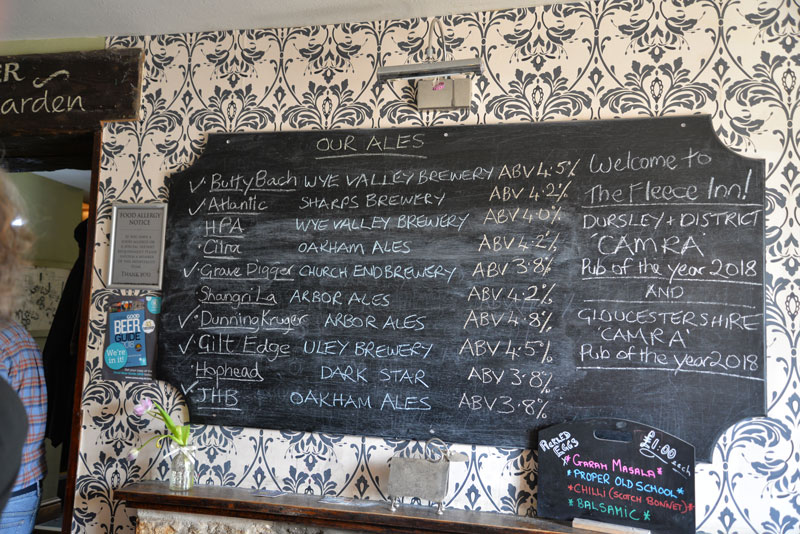 ER
arden
FOOD ALLERGY
NOTICE
THANK YOU
GOOD
BEER
GUIDE
We're
in it!
OUR ALES
✓ Butty Bach WYE VALLEY BREWERY ABV 4.5%
✓ Atlantic SHARPS BREWERY ABV 4.2%
HPA WYE VALLEY BREWERY ABV 4.0%
Citra OAKHAM ALES ABV 4.2%
✓ Grave Digger CHURCH END BREWERY ABV 3.8%
Shangri La ARBOR ALES ABV 4.2%
✓ Dunning Kruger ARBOR ALES ABV 4.8%
✓ Gilt Edge ULEY BREWERY ABV 4.5%
Hophead DARK STAR ABV 3.8%
✓ JHB OAKHAM ALES ABV 3.8%
Welcome to
The Fleece Inn!
DURSLEY + DISTRICT
'CAMRA'
Pub of the year 2018
AND
GLOUCESTERSHIRE
'CAMRA'
Pub of the year 2018
PICKLED
EGGS
£1.00 each
*GARAM MASALA*
*PROPER OLD SCHOOL*
*CHILLI (SCOTCH BONNET)*
*BALSAMIC*